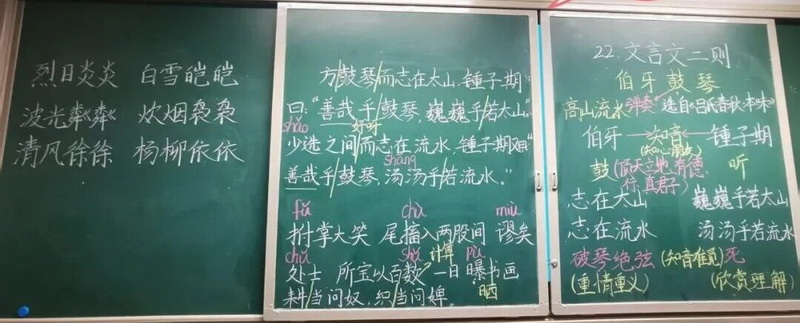 烈日炎炎 白雪皑皑
波光粼粼 炊烟袅袅
清风徐徐 杨柳依依
方鼓琴而志在太山,锺子期
曰:“善哉乎鼓琴,巍巍乎若太山。”
shǎo 好呀
少选之间而志在流水,锺子期
shāng
善哉乎鼓琴,汤汤乎若流水。”
fǔ chù miù
拊掌大笑 尾搐入两股间 谬矣
chǔ shǔ 计算 pù
处士 所宝以百数 一日曝书画
耕当问奴,织当问婢。 晒
22.文言文二则
伯牙鼓琴
高山流水 弹奏 选自《吕氏春秋·本味》
伯牙 知音 锺子期
鼓(顶天立地,有德行,真君子) 听
志在太山 巍巍乎若太山
志在流水 汤汤乎若流水
破琴绝弦(知音难觅)死
(重情重义) (欣赏理解)